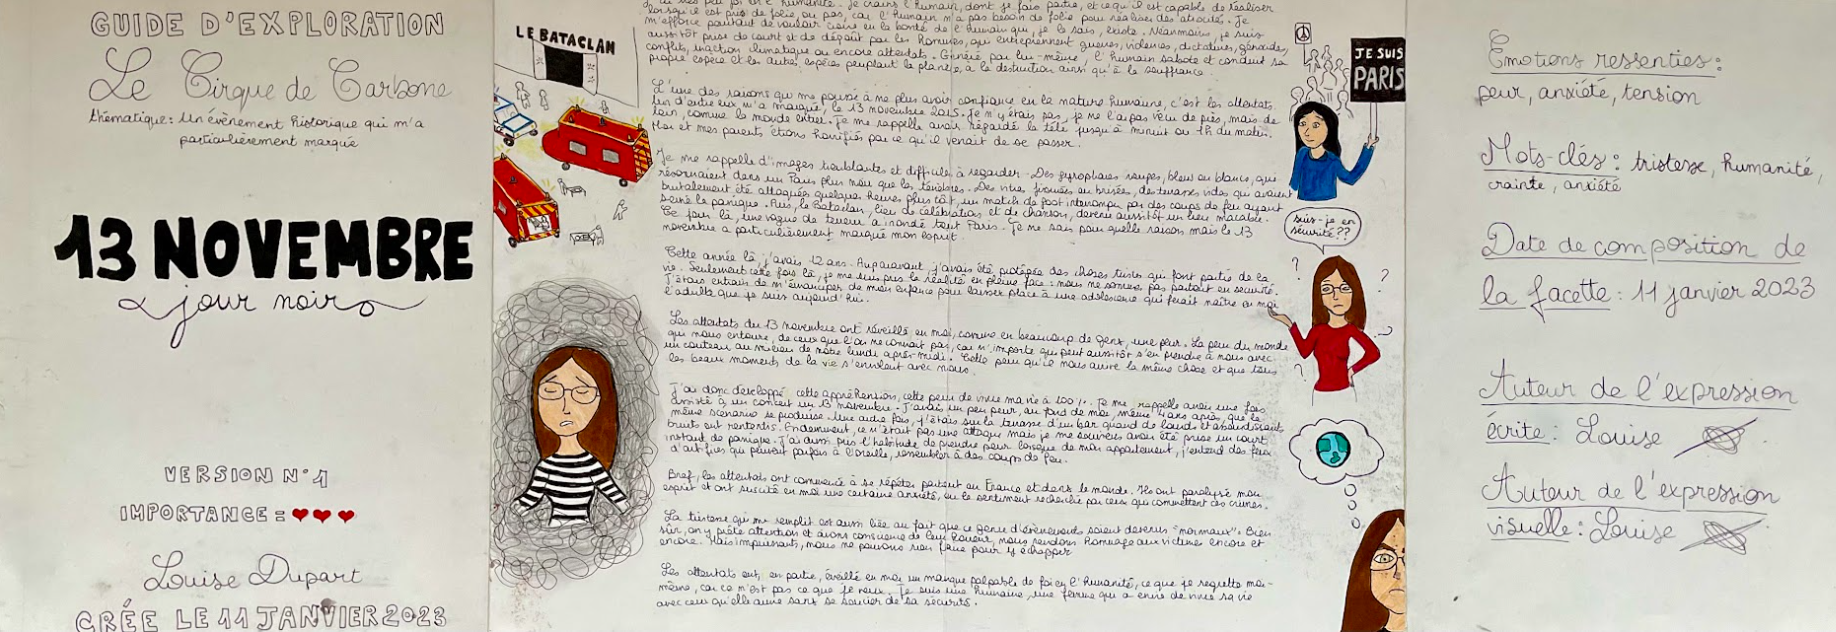 GUIDE D'EXPLORATION
Le Cirque de Carbone
thématique: Un évènement historique qui m'a
particulièrement marqué
13 NOVEMBRE
jour noir
VERSION N°1
IMPORTANCE =
Louise Dupart
CRÉE LE 11 JANVIER 2023
LE BATACLAN
foi en l'humanité. Je crains l'humain, dont je fais partie, et ce qu'il est capable de réaliser
lorsqu'il est pris de folie, ou pas, car l'humain n'a pas besoin de folie pour réaliser des atrocités. Je
m'efforce pourtant de vouloir croire en la bonté de l'humain qui, je le sais, existe. Néanmoins, je suis
aussitôt prise de court et de dégoût par les Hommes, qui entreprennent guerres, violences, dictatures, génocides,
conflits, inaction climatique ou encore attentats. Généré par lui-même, l'humain sabote et conduit sa
propre espèce et les autres espèces peuplant la planète, à la destruction ainsi qu'à la souffrance.
L'une des raisons qui me pousse à ne plus avoir confiance en la nature humaine, c'est les attentats.
L'un d'entre eux m'a marqué, le 13 novembre 2015. Je n'y étais pas, je ne l'ai pas vécu de près, mais de
loin, comme le monde entier. Je me rappelle avoir regardé la télé jusqu'à minuit ou 1h du matin.
Moi et mes parents étions horrifiés par ce qu'il venait de se passer.
Je me rappelle d'images troublantes et difficiles à regarder. Des gyrophares rouges, bleus ou blancs, qui
résonnaient dans un Paris plus noir que les ténèbres. Des vitres fissurées ou brisées, des terrasses vides qui avaient
brutalement été attaquées quelques heures plus tôt, un match de foot interrompu par des coups de feu ayant
semé la panique. Puis, le Bataclan, lieu de célébrations et de chanson, devenu aussitôt un lieu macabre.
Ce jour là, une vague de terreur a inondé tout Paris. Je ne sais pour quelle raison mais le 13
novembre a particulièrement marqué mon esprit.
Cette année là j'avais 12 ans. Auparavant j'avais été protégée des choses tristes qui font partie de la
vie. Seulement cette fois là, je me suis pris la réalité en pleine face: nous ne sommes pas partout en sécurité.
J'étais entrain de m'émanciper de mon enfance pour laisser place à une adolescence qui ferait naître en moi
l'adulte que je suis aujourd'hui.
Les attentats du 13 novembre ont réveillé en moi, comme en beaucoup de gens, une peur. La peur du monde
qui nous entoure, de ceux que l'on ne connait pas, car n'importe qui peut aussitôt s'en prendre à nous avec
un couteau au milieu de notre lundi après-midi. Cette peur qu'il nous arrive la même chose et que tous
les beaux moments de la vie s'envolent avec nous.
J'ai donc développé cette appréhension, cette peur de vivre ma vie à 100%. Je me rappelle avoir une fois
assisté à un concert un 13 novembre. J'avais un peu peur, au fond de moi, même 4 ans après que le
même scénario se produise. Une autre fois, j'étais sur la terrasse d'un bar quand de lourds et assourdissants
bruits ont retentis. Evidemment, ce n'était pas une attaque mais je me souviens avoir été prise un court
instant de panique. J'ai aussi pris l'habitude de prendre peur lorsque de mon appartement, j'entend des feux
d'artifices qui peuvent parfois à l'oreille, ressembler à des coups de feu.
Bref, les attentats ont commencé à se répéter partout en France et dans le monde. Ils ont paralysé mon
esprit et ont suscité en moi une certaine anxiété, ou le sentiment recherché par ceux qui commettent ces crimes.
La tristesse qui me remplit est aussi liée au fait que ce genre d'évènements soient devenus "normaux". Bien
sûr, on y prête attention et avons conscience de leur horreur, nous rendons hommage aux victimes encore et
encore. Mais impuissants, nous ne pouvons rien faire pour y échapper
Les attentats ont, en partie, éveillé en moi un manque palpable de foi en l'humanité, ce que je regrette moi-
même, car ce n'est pas ce que je veux. Je suis une humaine, une femme qui a envie de vivre sa vie
avec ceux qu'elle aime sans se soucier de sa sécurité.
JE SUIS
PARIS
suis-je en
sécurité??
? ?
?
?
Emotions ressenties:
peur, anxiété, tension
Mots-clés: tristesse, humanité,
crainte, anxiété
Date de composition de
la facette: 11 janvier 2023
Auteur de l'expression
écrite: Louise
Auteur de l'expression
visuelle: Louise